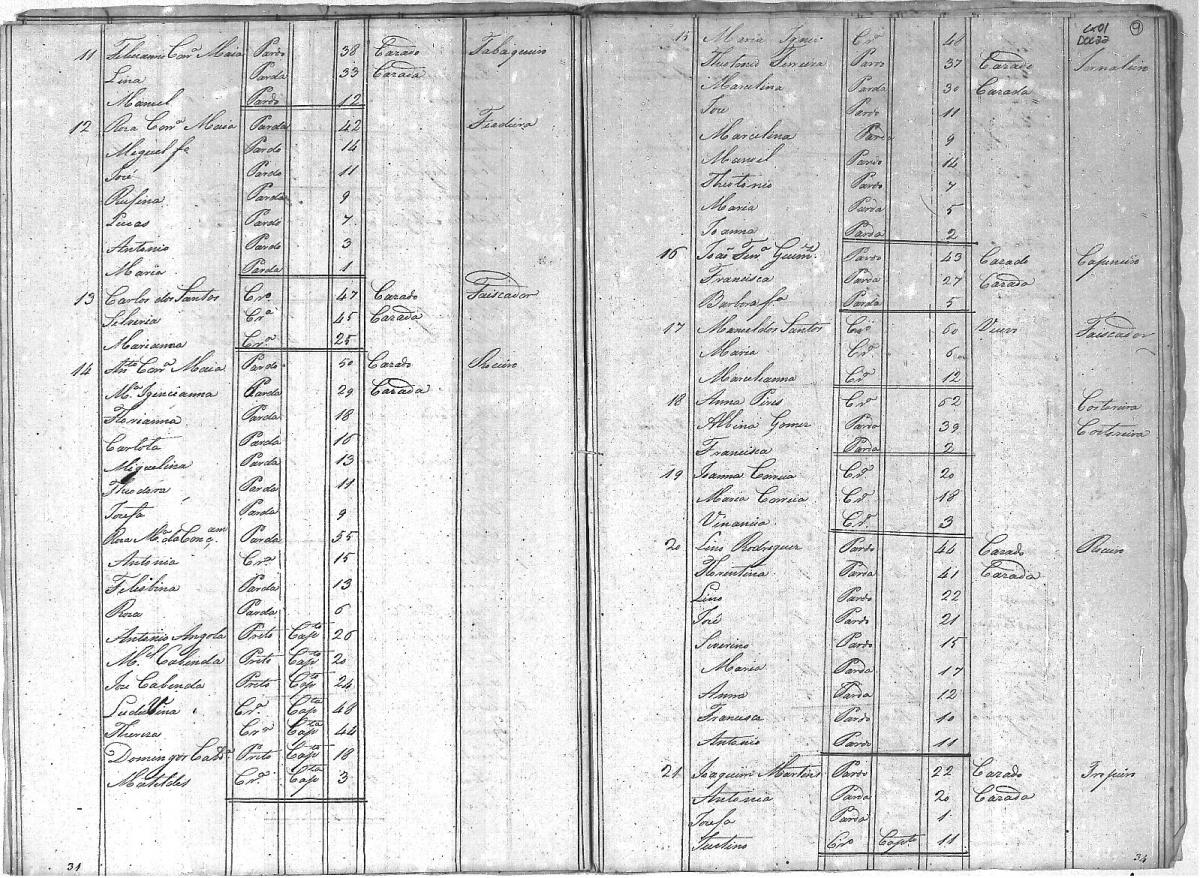 11 Feliciano Corª Maia Pardo 38 Cazado Tabaqueiro
Lina Parda 33 Cazada
Manoel Pardo 12
12 Roza Corª Maia Parda 42 Fiadeira
Miguel fº Pardo 14
José Pardo 11
Rufina Parda 9
Lucas Pardo 7
Antonio Pardo 3
Maria Parda 1
13 Carlos dos Santos Crº 47 Cazado Faiscador
Silveria Crª 45 Cazada
Marianna Crª 25
14 Antº Corª Maia Pardo 50 Cazado Roceiro
Mª Igncianna Parda 29 Cazada
Florianna Parda 18
Carlota Parda 16
Miquelina Parda 13
Theodora Parda 11
Jozefa Parda 9
Roza Mª da Concam Parda 55
Antonia Crª 15
Felisbina Parda 13
Roza Parda 6
Antonio Angola Preto Capto 26
Mel Cabenda Preto Capto 20
Joze Cabenda Preto Capto 24
Ludovina Crª Capta 48
Thereza Crª Capta 44
Domingos Cabª Preto Capto 18
Matildes Crª Capta 3
31
Cx01
Doc22
9
15 Maria Crª 48
Theotonio Ferreira Pardo 37 Cazado Jornaleiro
Marcelina Parda 30 Cazada
Joze Pardo 11
Marcelina Parda 9
Manoel Pardo 14
Theotonio Pardo 7
Maria Parda 5
Joanna Parda 2
16 João Ferª Guimes Pardo 43 Cazado Capineiro
Francisca Parda 27 Cazada
Barbora fª Parda 5
17 Manoel dos Santos Crº 60 Viuvo Faiscador
Maria Crª 6
Marcelianna Crª 12
18 Anna Pires Crª 52 Costereira
Albina Gomes Parda 39 Costereira
Francisca Parda 2
19 Joanna Correia Crª 20
Maria Correia Crª 18
Vinancia Crª 3
20 Lino Rodrigues Pardo 44 Cazado Roceiro
Florentina Parda 41 Cazada
Lino Pardo 22
José Pardo 21
Siverino Pardo 15
Maria Parda 17
Anna Parda 12
Francisca Parda 10
Antonio Pardo 11
21 Joaquim Martins Pardo 22 Cazado Tropeiro
Antonia Parda 20 Cazada
Jozefa Parda 1
Justino Crº Capto 11
34